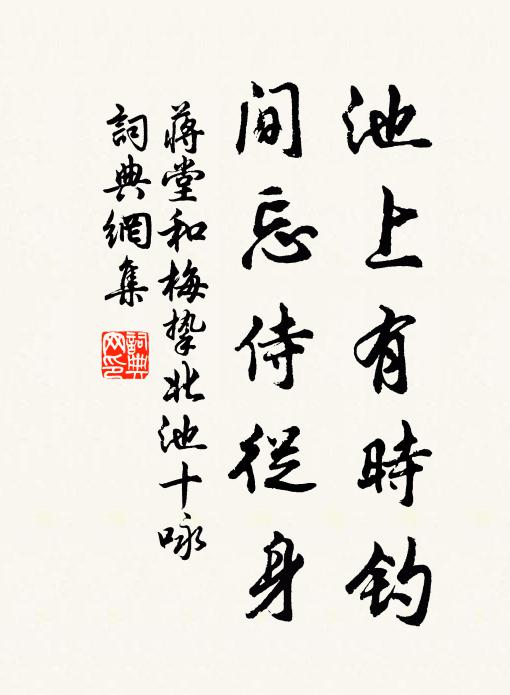 池上有時釣
间忘侍從身
蔣堂和梅摯北池十咏
詞典網集
詞典
网印